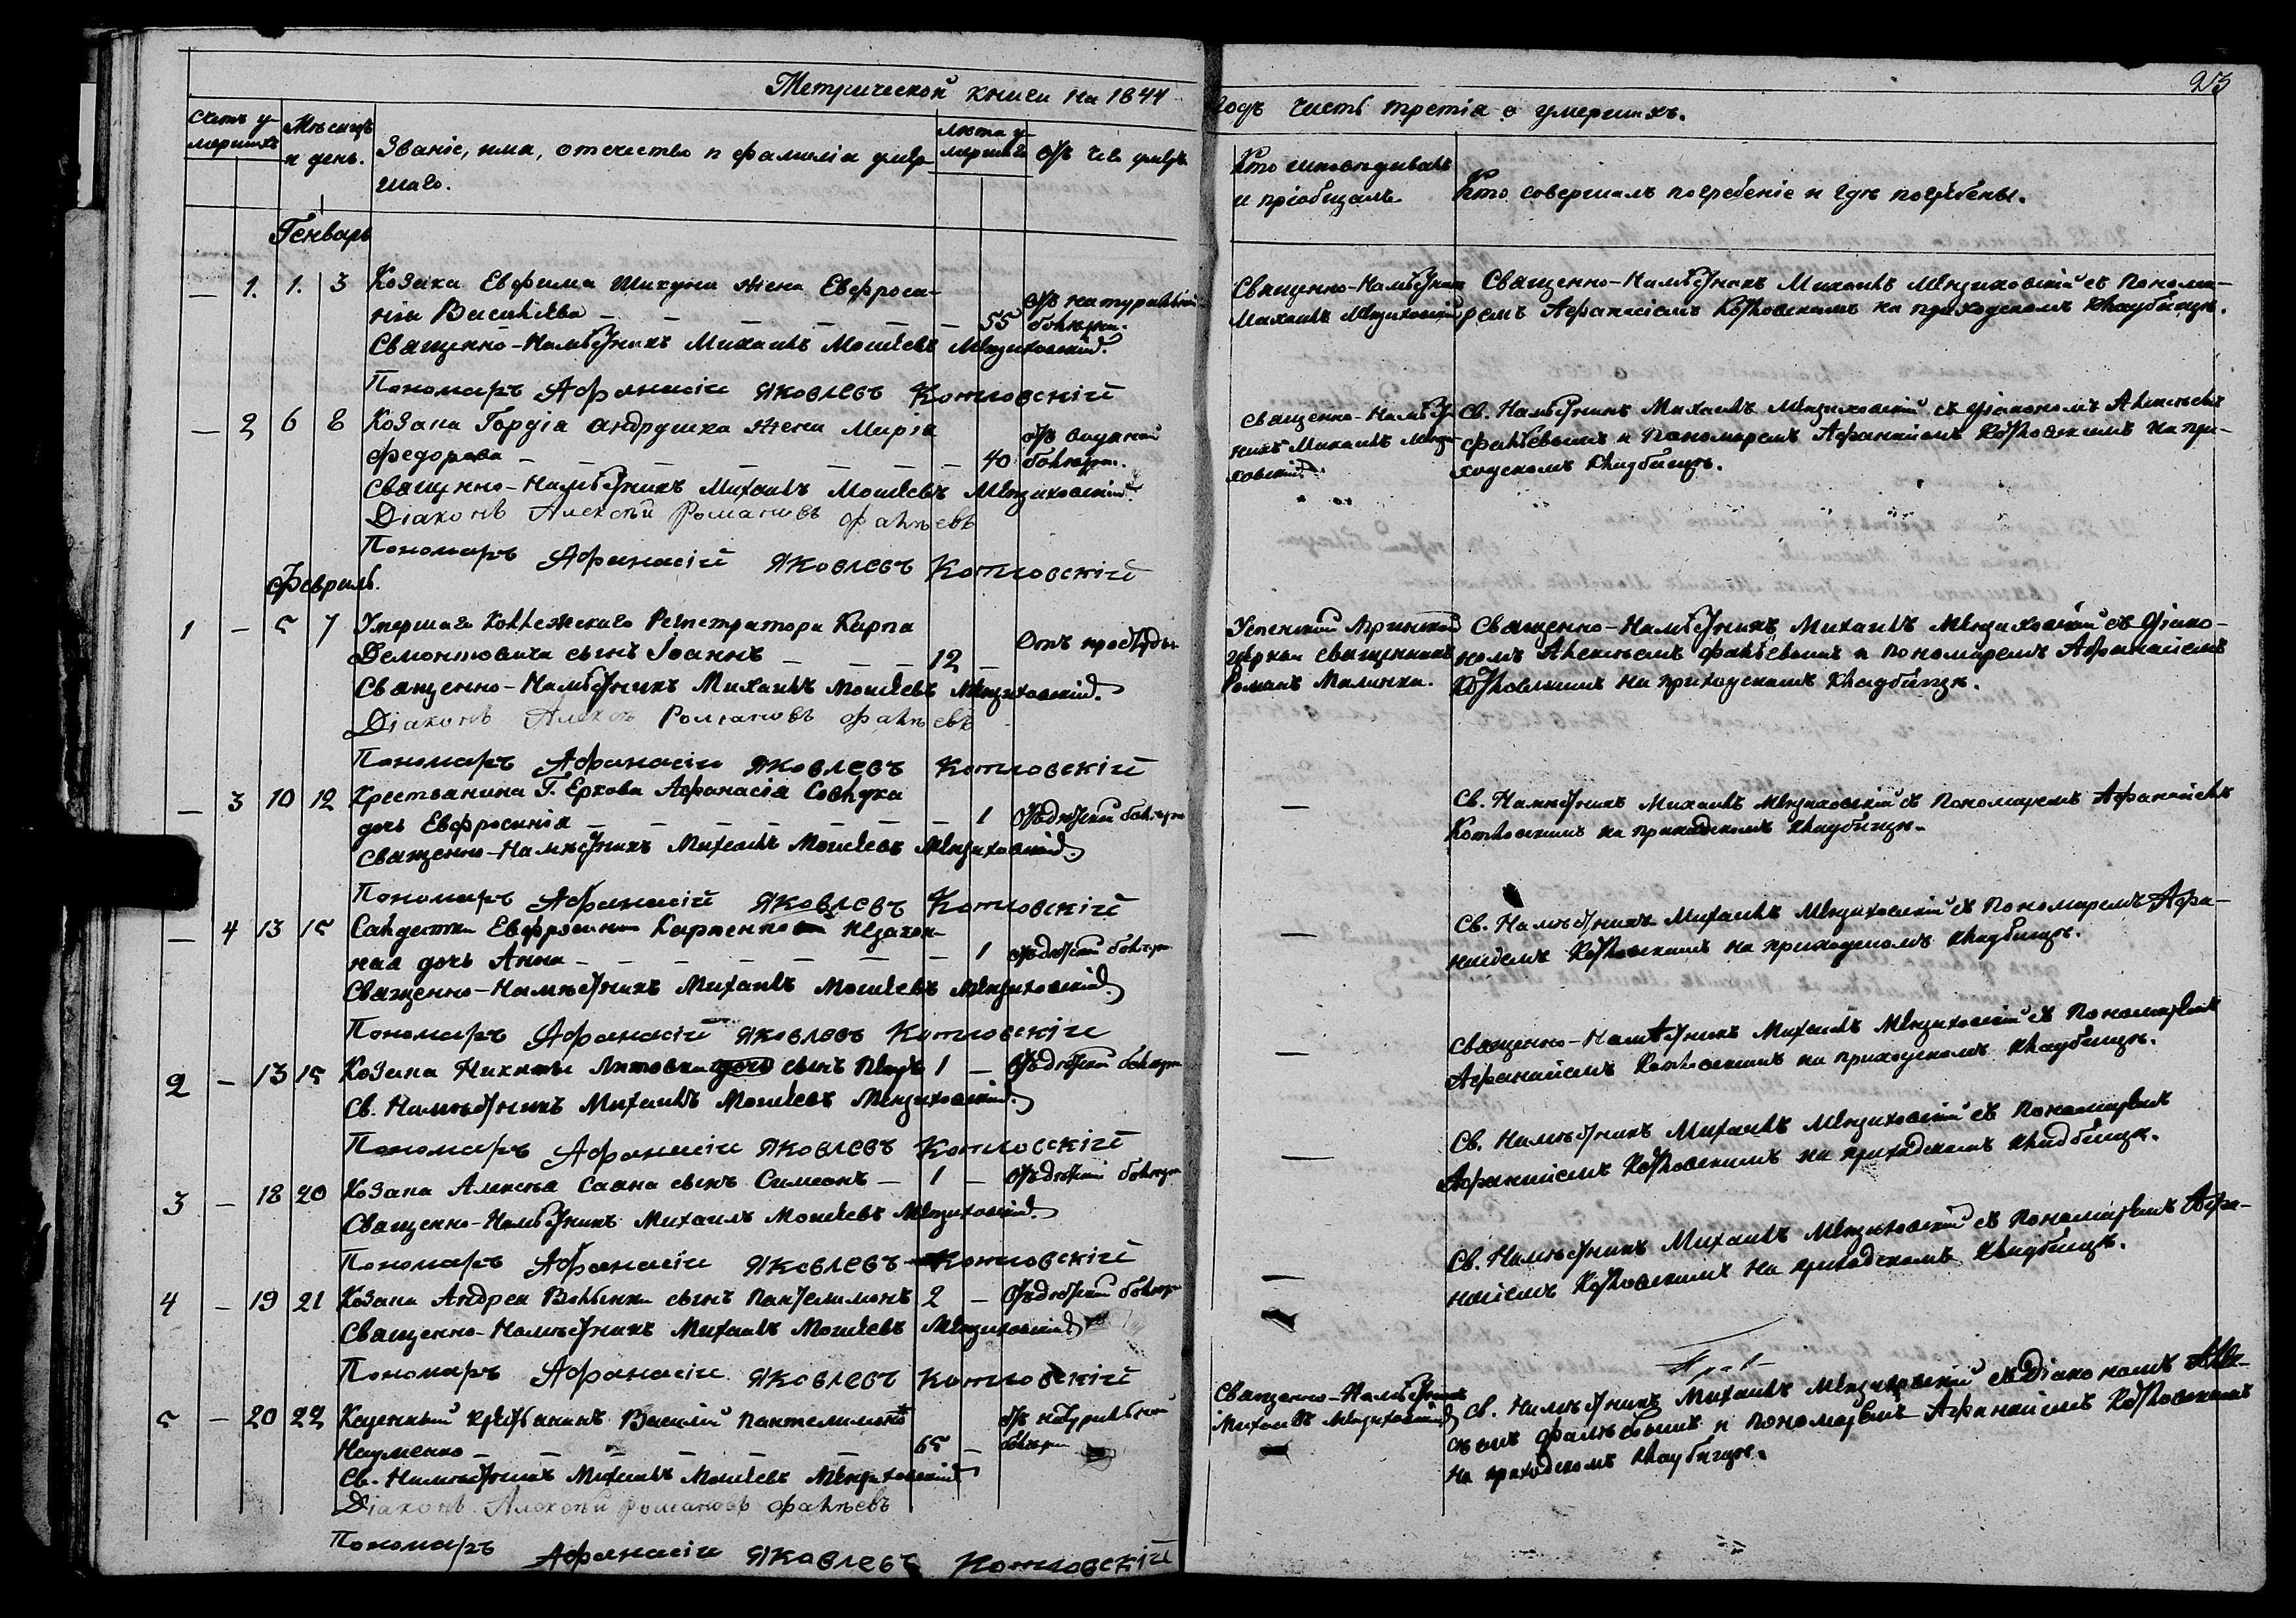 Метрической книги на 1844
Счетъ у-
мершихъ
Мѣсяцъ
и день.
Званіе, имя, отечество и фамилія умер-
шаго.
лѣта у-
мершаго
Отъ чего умеръ
Генварь
— 1. 1. 3 Козака Евфима Шикуна жена Евфроси-
нія Васильева — — — — — — 55 отъ натуральной болѣзни.
Священно-Намѣстникъ Михаилъ Моисеевъ
Пономаръ Афанасій Яковлевъ Котловскій
— 2 6 8 Козака Гордіа Андрушка жена Марія
Федорова — — — — — — 40 отъ болѣзни.
Священно-Намѣстникъ Михаилъ Моисеевъ
Діаконъ Алексѣй Романовъ Фалѣевъ
Пономаръ Афанасій Яковлевъ Котловскій
Февраль.
1 — 5 7 Умершаго Коллежскаго Регистратора Карпа
сынъ Іоаннъ — — — 12 — Отъ простуды
Священно-Намѣстникъ Михаилъ Моисеевъ
Діаконъ Алексѣй Романовъ Фалѣевъ
Пономаръ Афанасій Яковлевъ Котловскій
— 3 10 12 Крестьянина Г. Еркова Афанасія
дочь Евфросинія — — — — — — 1 отъ дѣтской болѣзни
Священно-Намѣстникъ Михаилъ Моисеевъ
Пономаръ Афанасій Яковлевъ Котловскій
— 4 13 15 Салдатки Евфросиніи Карпенковой незакон-
ная дочь Анна — — — — — — 1 отъ дѣтской болѣзни
Священно-Намѣстникъ Михаилъ Моисеевъ
Пономаръ Афанасій Яковлевъ Котловскій
2 — 13 15 Козака Никиты Литовки дочь сынъ 1 — отъ дѣтской болѣзни
Св. Намѣстникъ Михаилъ Моисеевъ
Пономаръ Афанасій Яковлевъ Котловскій
3 — 18 20 Козака Алексѣя Саана сынъ Симеонъ — 1 — отъ дѣтской болѣзни
Священно-Намѣстникъ Михаилъ Моисеевъ
Пономаръ Афанасій Яковлевъ Котловскій
4 — 19 21 Козака Андрея Волынки сынъ Пантелимонъ 2 — отъ дѣтской болѣзни
Священно-Намѣстникъ Михаилъ Моисеевъ
Пономаръ Афанасій Яковлевъ Котловскій
5 — 20 22 Казенный крестьянинъ Василій Пантелимоновъ
Науменко — — — — — 65 — отъ натуральной болѣзни
Св. Намѣстникъ Михаилъ Моисеевъ
Діаконъ Алексѣй Романовъ Фалѣевъ
Пономаръ Афанасій Яковлевъ Котловскій
годъ часть третія о умершихъ.
Кто исповѣдывалъ
и пріобщалъ
Кто совершалъ погребеніе и гдѣ погребены.
Священно-Намѣстникъ
Михаилъ
Священно-Намѣстникъ Михаилъ съ Понома-
ремъ Афанасіемъ Котловскимъ на приходскомъ кладбищѣ.
Священно-Намѣст-
никъ Михаилъ
Св. Намѣстникъ Михаилъ съ Діакономъ Алексѣемъ
Фалѣевымъ и Пономаремъ Афанасіемъ Котловскимъ на при-
ходскомъ кладбищѣ.
Успенской
церкви священникъ
Романъ Малинка.
Священно-Намѣстникъ Михаилъ съ Діако-
номъ Алексѣемъ Фалѣевымъ и Пономаремъ Афанасіемъ
Котловскимъ на приходскомъ кладбищѣ.
— Св. Намѣстникъ Михаилъ съ Пономаремъ Афанасіемъ
Котловскимъ на приходскомъ кладбищѣ.
— Св. Намѣстникъ Михаилъ съ Пономаремъ Афа-
насіемъ Котловскимъ на приходскомъ кладбищѣ.
— Священно-Намѣстникъ Михаилъ съ Пономаремъ
Афанасіемъ Котловскимъ на приходскомъ кладбищѣ.
— Св. Намѣстникъ Михаилъ съ Пономаремъ
Афанасіемъ Котловскимъ на приходскомъ кладбищѣ.
— Св. Намѣстникъ Михаилъ съ Пономаремъ Афа-
насіемъ Котловскимъ на приходскомъ кладбищѣ.
Священно-Намѣстникъ
Михаилъ
Св. Намѣстникъ Михаилъ съ Діакономъ Алек-
сѣемъ Фалѣевымъ и Пономаремъ Афанасіемъ Котловскимъ
на приходскомъ кладбищѣ.